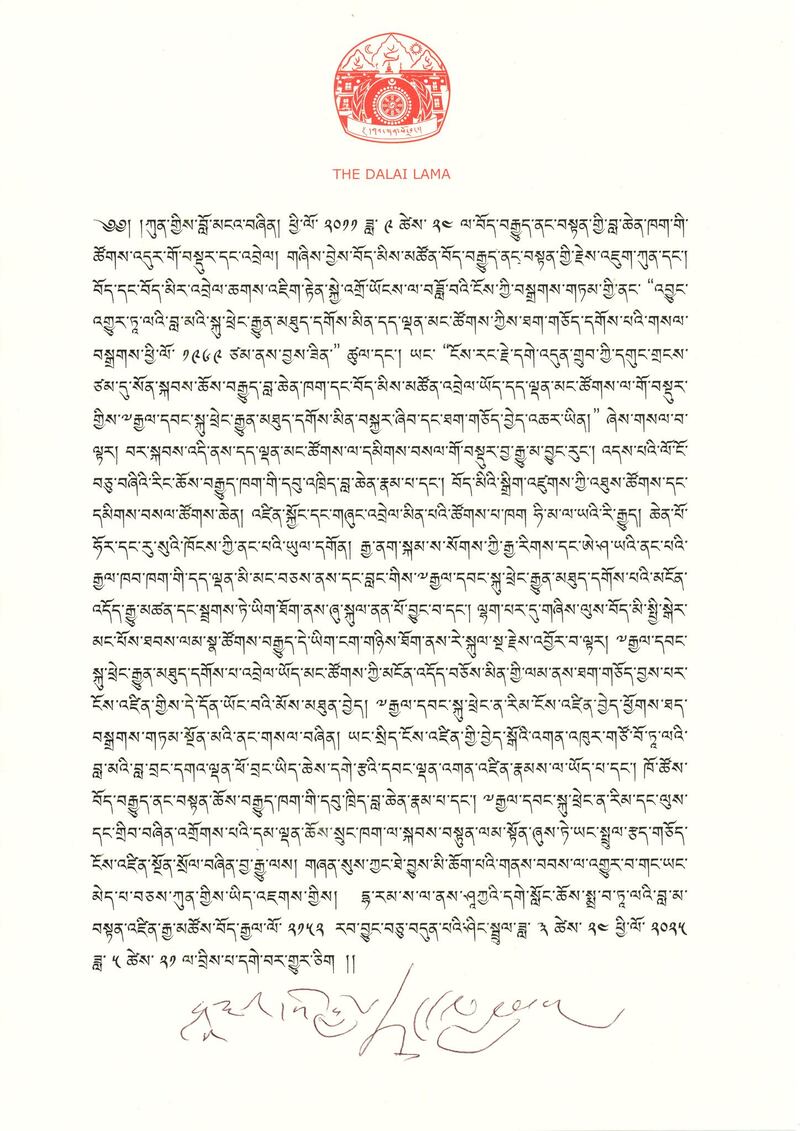 THE DALAI LAMA
༄༅། །ཀུན་གྱིས་བློ་མངའ་བཞིན། ཕྱི་ལོ་ ༢༠༡༡ ཟླ་ ༩ ཚེས་ ༢༤ ལ་བོད་བརྒྱུད་ནང་བསྟན་གྱི་བླ་ཆེན་ཁག་གི་
ཚོགས་འདུར་གོ་བསྡུར་དང་འབྲེལ། གཞིས་བྱེས་བོད་མིས་མཚོན་བོད་བརྒྱུད་ནང་བསྟན་གྱི་རྗེས་འཇུག་ཀུན་དང་།
བོད་དང་བོད་མིར་འབྲེལ་ཆགས་འཇིག་རྟེན་སྐྱེ་འགྲོ་ཡོངས་ལ་བཟློ་བའི་ངོས་ཀྱི་བསྒྲགས་གཏམ་གྱི་ནང་ “འབྱུང་
འགྱུར་ཏཱ་ལའི་བླ་མའི་སྐུ་ཕྲེང་རྒྱུན་མཐུད་དགོས་མིན་དད་ལྡན་མང་ཚོགས་ཀྱིས་ཐག་གཅོད་དགོས་པའི་གསལ་
བསྒྲགས་ཕྱི་ལོ་ ༡༩༦༩ ཙམ་ནས་བྱས་ཟིན་” ཚུལ་དང་། ཡང་ “ངོས་རང་རྗེ་དགེ་འདུན་གྲུབ་ཀྱི་དགུང་གྲངས་
ཙམ་དུ་སོན་སྐབས་ཆོས་བརྒྱུད་བླ་ཆེན་ཁག་དང་བོད་མིས་མཚོན་འབྲེལ་ཡོད་དད་ལྡན་མང་ཚོགས་ལ་གོ་བསྡུར་
གྱིས་༸རྒྱལ་དབང་སྐུ་ཕྲེང་རྒྱུན་མཐུད་དགོས་མིན་བསྐྱར་ཞིབ་དང་ཐག་གཅོད་བྱེད་འཆར་ཡིན།” ཞེས་གསལ་བ་
ལྟར། བར་སྐབས་འདི་ནས་དད་ལྡན་མང་ཚོགས་ལ་དམིགས་བསལ་གོ་བསྡུར་བྱ་རྒྱུ་མ་བྱུང་རུང་། འདས་པའི་ལོ་ངོ་
བཅུ་བཞིའི་རིང་ཆོས་བརྒྱུད་ཁག་གི་དབུ་འཁྲིད་བླ་ཆེན་རྣམ་པ་དང་། བོད་མིའི་སྒྲིག་འཛུགས་ཀྱི་འཐུས་ཚོགས་དང་
དམིགས་བསལ་ཚོགས་ཆེན། འཛིན་སྐྱོང་དང་གཞུང་འབྲེལ་མིན་པའི་ཚོགས་པ་ཁག ཧི་མ་ལ་ཡའི་རི་རྒྱུད། ཆེན་པོ་
ཧོར་དང་རུ་སུའི་ཁོངས་ཀྱི་ནང་པའི་ཡུལ་དགོན། རྒྱ་ནག་སྐམ་ས་སོགས་ཀྱི་རྒྱ་རིགས་དང་ཨེ་ཤ་ཡའི་ནང་པའི་
རྒྱལ་ཁབ་ཁག་གི་དད་ལྡན་མི་མང་བཅས་ནས་དང་བླང་གིས་༸རྒྱལ་དབང་སྐུ་ཕྲེང་རྒྱུན་མཐུད་དགོས་པའི་མངོན་
འདོད་རྒྱུ་མཚན་དང་སྦྲགས་ཏེ་ཡིག་ཐོག་ནས་ཞུ་སྐུལ་ནན་པོ་བྱུང་བ་དང་། ལྷག་པར་དུ་གཞིས་ལུས་བོད་མི་སྤྱི་སྒེར་
མང་པོས་ཐབས་ལམ་སྣ་ཚོགས་བརྒྱུད་དེ་ཡིག་ངག་གཉིས་ཐོག་ནས་རེ་སྐུལ་སྔ་རྗེས་འབྱོར་བ་ལྟར། ༸རྒྱལ་དབང་
སྐུ་ཕྲེང་རྒྱུན་མཐུད་དགོས་པ་འབྲེལ་ཡོད་མང་ཚོགས་ཀྱི་མངོན་འདོད་བཅོས་མིན་གྱི་ལམ་ནས་ཐག་གཅོད་བྱས་པར་
ངོས་འཛིན་གྱིས་དེ་དོན་ཡོང་བའི་མོས་མཐུན་བྱེད། ༸རྒྱལ་དབང་སྐུ་ཕྲེང་ན་རིམ་ངོས་འཛིན་བྱེད་ཕྱོགས་ཐད་
བསྒྲགས་གཏམ་སྔོན་མའི་ནང་གསལ་བཞིན། ཡང་སྲིད་ངོས་འཛིན་གྱི་བྱེད་སྒོའི་འགན་འཁུར་གཙོ་བོ་ཏཱ་ལའི་
བླ་མའི་བླ་བྲང་དགའ་ལྡན་ཕོ་བྲང་ཡིད་ཆེས་དགེ་རྩའི་དབང་ལྡན་འགན་འཛིན་རྣམས་ལ་ཡོད་པ་དང་། ཁོ་ཚོས་
བོད་བརྒྱུད་ནང་བསྟན་ཆོས་བརྒྱུད་ཁག་གི་དབུ་ཁྲིད་བླ་ཆེན་རྣམ་པ་དང་། ༸རྒྱལ་དབང་སྐུ་ཕྲེང་ན་རིམ་དང་ལུས་
དང་གྲིབ་བཞིན་འགྲོགས་པའི་དམ་ལྡན་ཆོས་སྲུང་ཁག་ལ་སྐབས་བསྟུན་ལམ་སྟོན་ཞུས་ཏེ་ཡང་སྤྲུལ་རྩད་གཅོད་
ངོས་འཛིན་སྔོན་སྲོལ་བཞིན་བྱ་རྒྱུ་ལས། གཞན་སུས་ཀྱང་ཐེ་བྱུས་མི་ཆོག་པའི་གནས་བབས་ལ་འགྱུར་བ་གང་ཡང་
མེད་པ་བཅས་ཀུན་གྱིས་ཡིད་འཇགས་གྱིས། རྡྷ་རམ་ས་ལ་ནས་ཤཱཀྱའི་དགེ་སློང་ཆོས་སྨྲ་བ་ཏཱ་ལའི་བླ་མ་
བསྟན་འཛིན་རྒྱ་མཚོས་བོད་རྒྱལ་ལོ་ ༢༡༥༢ རབ་བྱུང་བཅུ་བདུན་པའི་ཤིང་སྦྲུལ་ཟླ་ ༣ ཚེས་ ༢༤ ཕྱི་ལོ་ ༢༠༢༥
ཟླ་ ༥ ཚེས་ ༢༡ ལ་བྲིས་པ་དགེ་བར་གྱུར་ཅིག །།